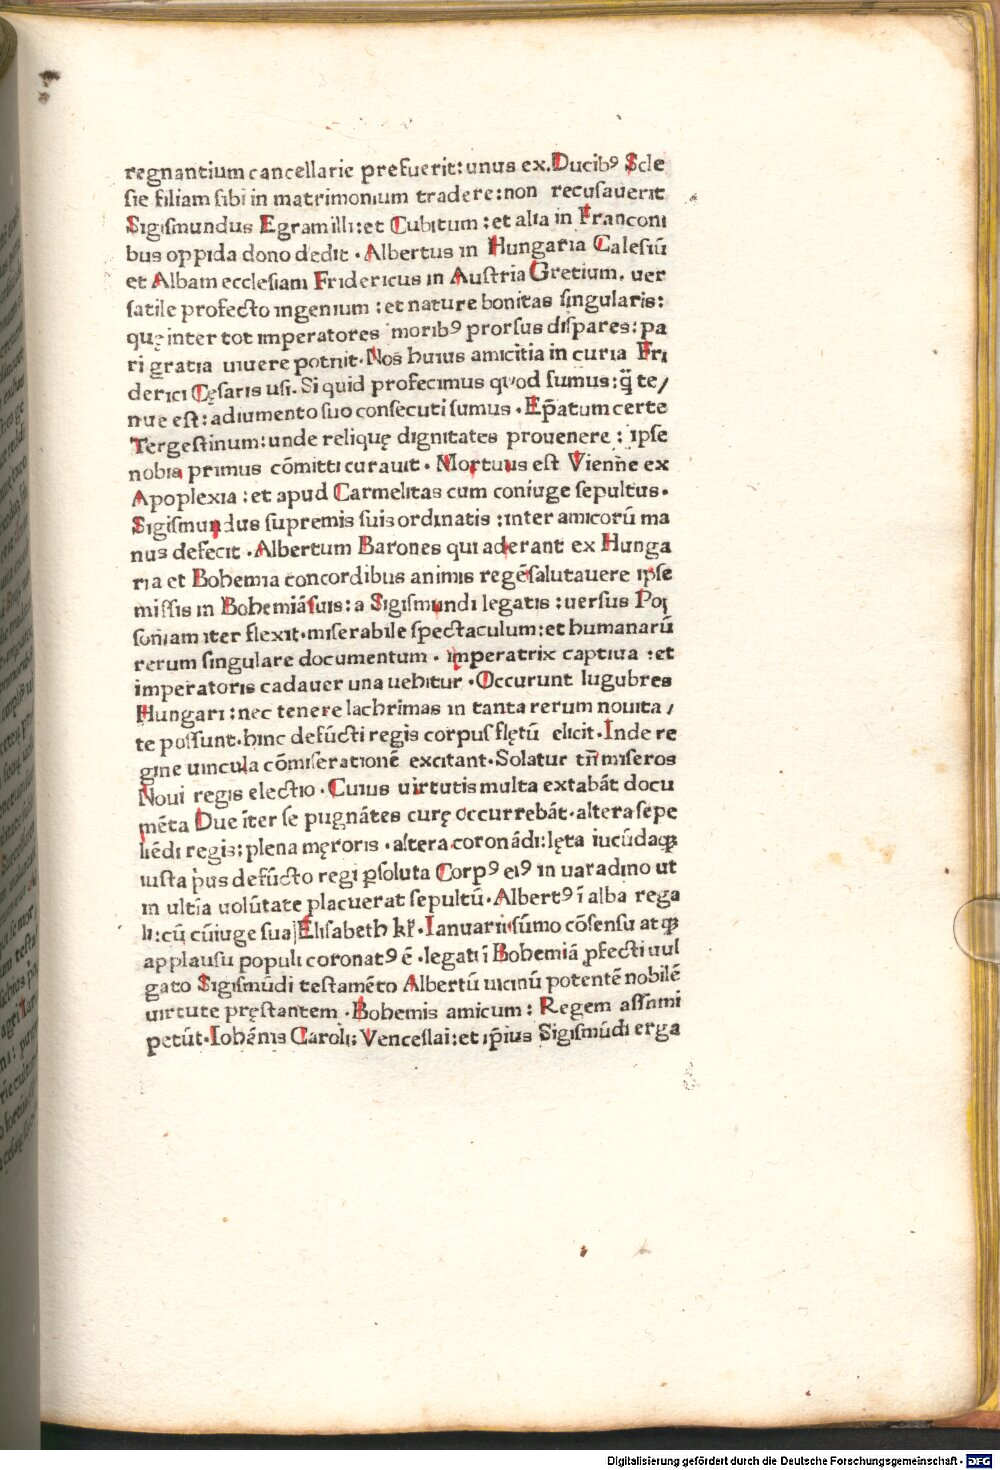 regnantium cancellarie prefuerit: unus ex. Ducibꝰ Scle
sie filiam sibi in matrimonium tradere: non recusauerit
Sigismundus Egram illi: et Cubitum: et alia in Franconi
bus oppida dono dedit · Albertus in Hungaria Calesiū
et Albam ecclesiam Fridericus in Austria Gretium. uer
satile profecto ingenium: et nature bonitas singularis:
quę inter tot imperatores moribꝰ prorsus dispares: pa
ri gratia uiuere potnit. Nos huius amicitia in curia Fri
derici Cęsaris usi. Si quid profecimus quod sumus: q̄ te/
nue est: adiumento suo consecuti sumus · Ep̄atum certe
Tergestinum: unde reliquę dignitates prouenere: ipse
nobis primus cōmitti curauit · Mortuus est Vienne ex
Apoplexia: et apud Carmelitas cum coniuge sepultus ·
Sigismundus supremis suis ordinatis: inter amicorū ma
nus defecit · Albertum Barones qui aderant ex Hunga
ria et Bohemia concordibus animis regē salutauere ipse
missis in Bohemiā suis: a Sigismundi legatis: uersus Pos
soniam iter flexit · miserabile spectaculum: et humanarū
rerum singulare documentum · imperatrix captiua: et
imperatoris cadauer una uehitur · Occurunt lugubres
Hungari: nec tenere lachrimas in tanta rerum nouita/
te possunt. hinc defūcti regis corpus flętū elicit · Inde re
gine uincula cōmiserationē excitant · Solatur tn̄ miseros
Noui regis electio · Cuius uirtutis multa extabāt docu
mēta Due īter se pugnātes curę occurrebāt · altera sepe
liēdi regis: plena męroris · altera coronādi: lęta iucūdaqꝫ
iusta p̄us defūcto regi ꝑsoluta Corpꝰ eiꝰ in uaradino ut
in ultīa uolūtate placuerat sepultū · Albertꝰ ī alba rega
li: cū cūiuge sua Elisabeth kł. Ianuarii sūmo cōsensu atqꝫ
applausu populi coronatꝰ ē · legati ī Bohemiā ꝓfecti uul
gato Sigismūdi testamēto Albertū uicinū potentē nobilē
uirtute pręstantem · Bohemis amicum: Regem assumi
petūt · Iohānis Caroli: Venceslai: et ip̄ius Sigismūdi erga
Digitalisierung gefördert durch die Deutsche Forschungsgemeinschaft · DFG